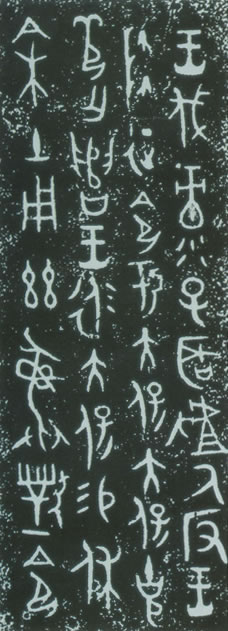 王伐彔子𦔻𠭯氒反王
降征令于大保大保克
芍亡遣王侃大保易休
余土用𢆶彝對令